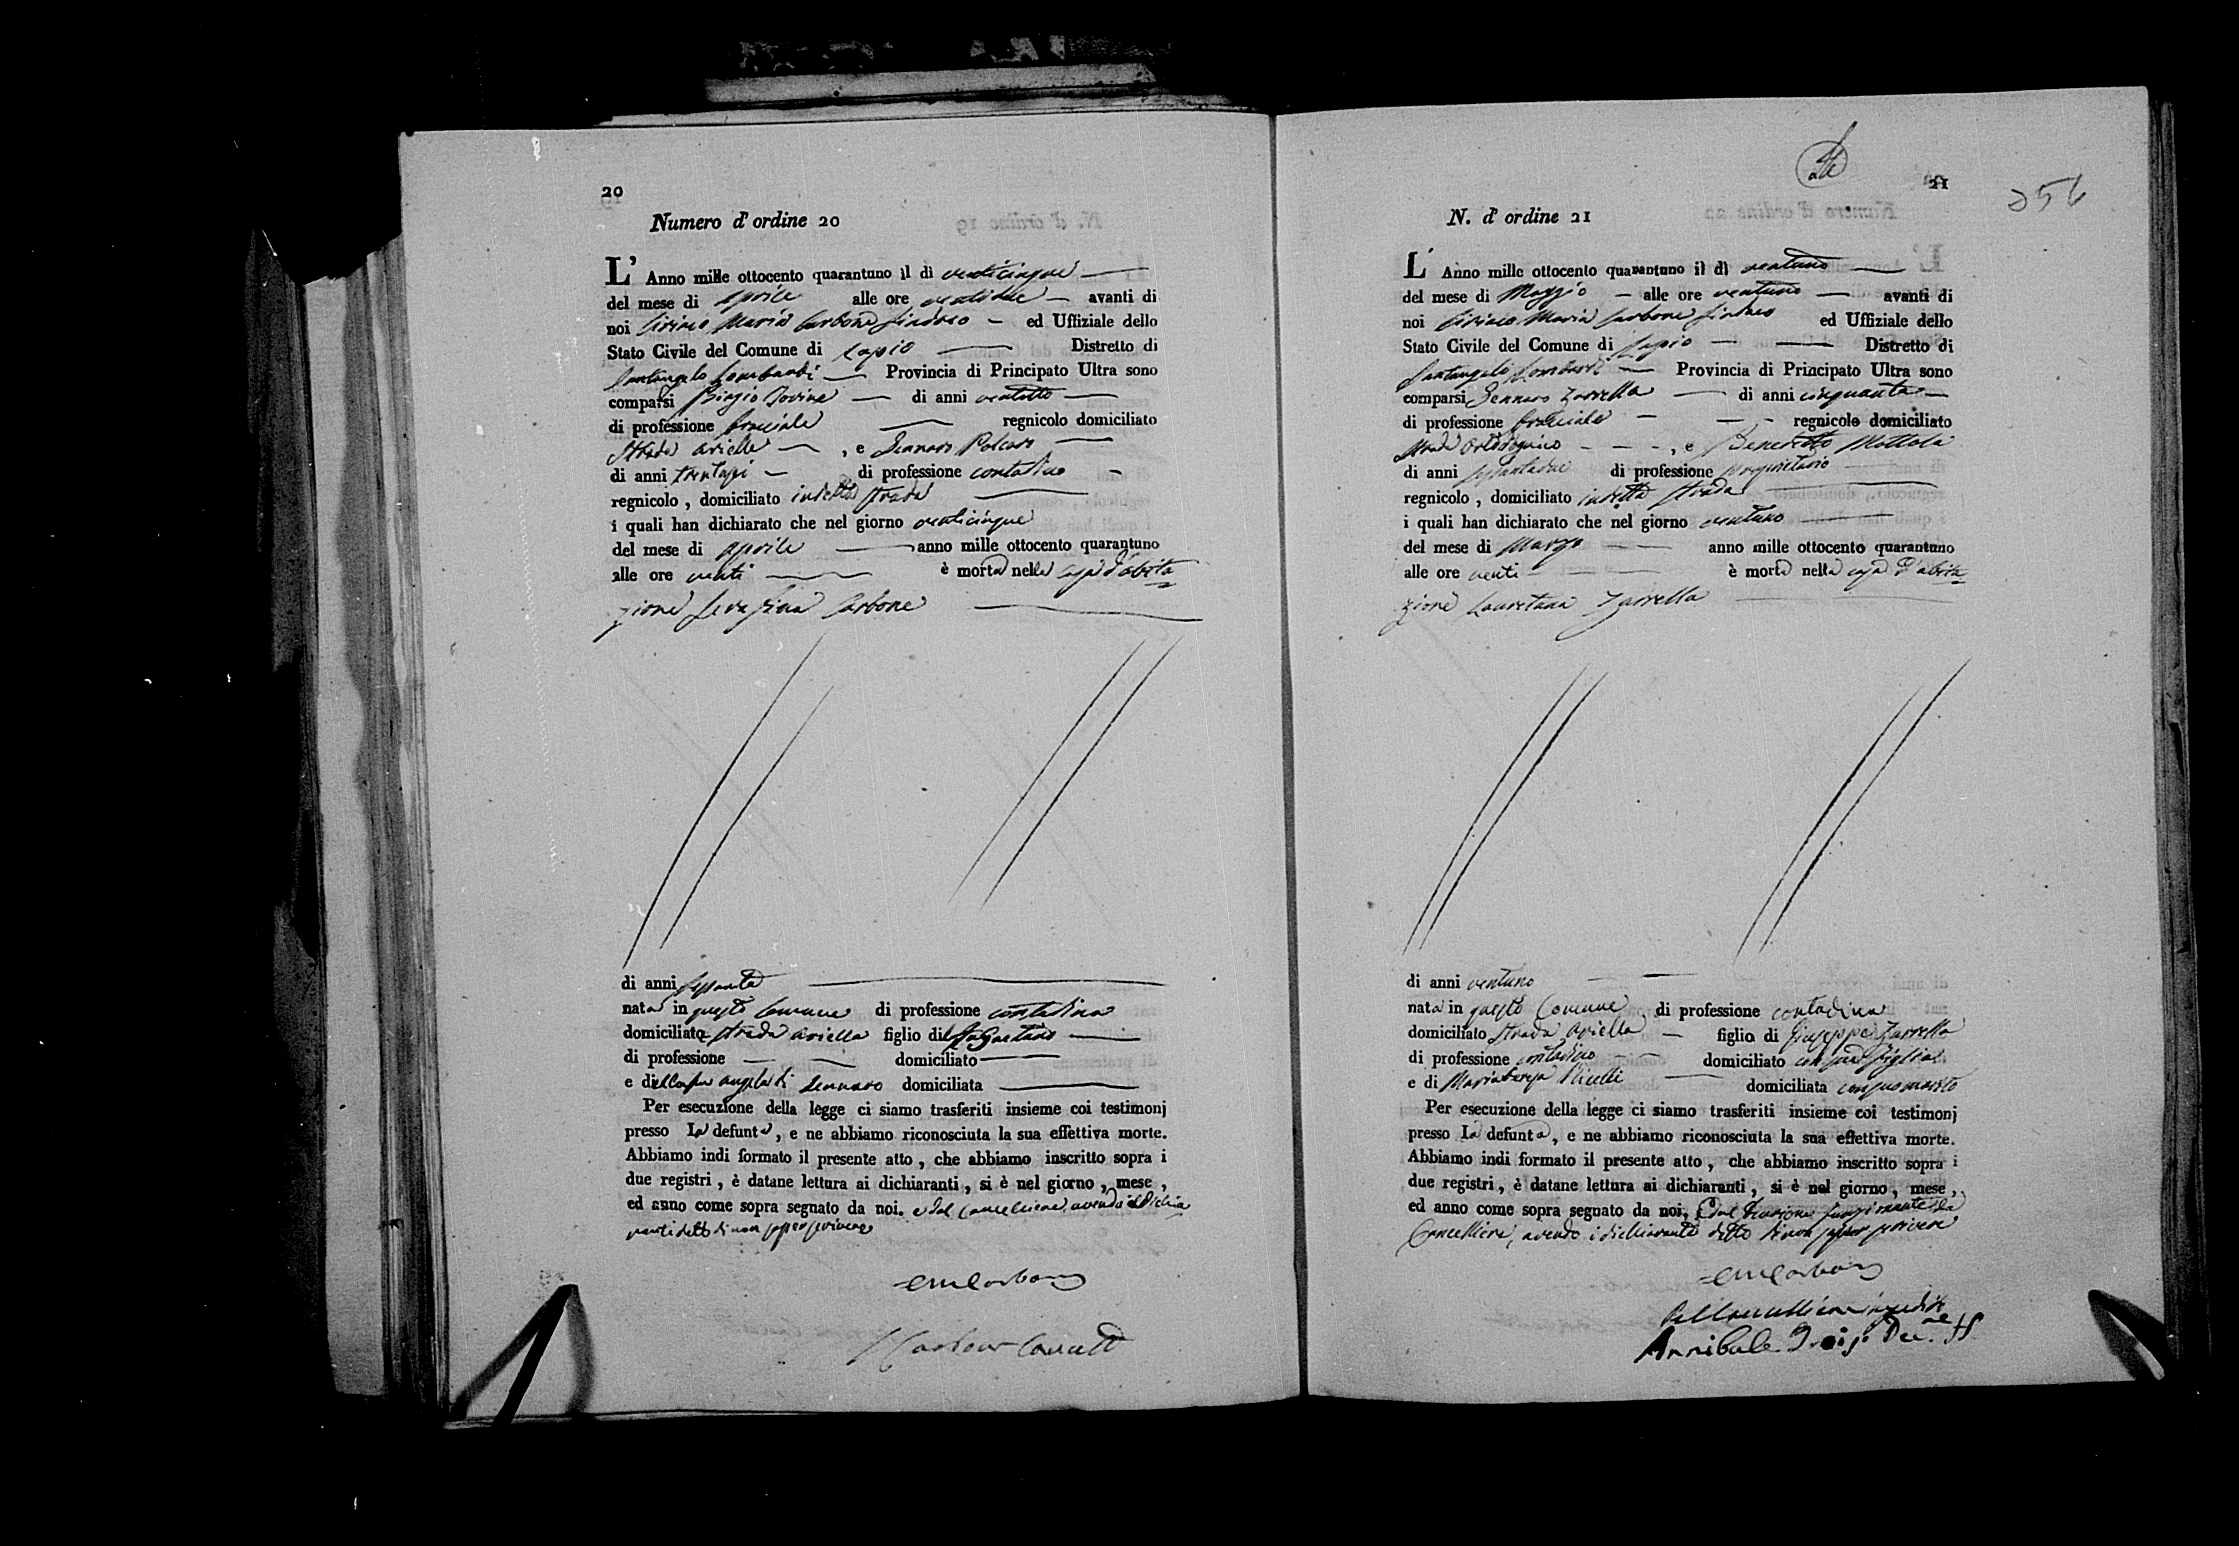 20
Numero d' ordine 20
L' Anno mille ottocento quarantuno il dì venticinque
del mese di aprile alle ore ventidue avanti di
noi Ciriaco Maria Carbone Sindaco ed Uffiziale dello
Stato Civile del Comune di Lapio Distretto di
Santangelo Lombardi Provincia di Principato Ultra sono
comparsi Biagio Iovine di anni ventotto
di professione bracciale regnicolo domiciliato
strada Arielle , e Gennaro
di anni trentasei di professione contadino
regnicolo , domiciliato in detta strada
i quali han dichiarato che nel giorno venticinque
del mese di aprile anno mille ottocento quarantuno
alle ore venti è morta nella casa d'abita
zione Serafina Carbone
di anni sessanta
nata in questo Comune di professione contadina
domiciliata strada Ariella figlio di fu Gaetano
di professione domiciliato
e della fu Angela di Gennaro domiciliata
Per esecuzione della legge ci siamo trasferiti insieme coi testimonj
presso la defunta , e ne abbiamo riconosciuta la sua effettiva morte.
Abbiamo indi formato il presente atto , che abbiamo inscritto sopra i
due registri , è datane lettura ai dichiaranti , si è nel giorno , mese ,
ed anno come sopra segnato da noi. e dal Cancelliere avendo i dichia
ranti detto di non saper scrivere
CM Carbone
21
256
N. d' ordine 21
L' Anno mille ottocento quarantuno il dì ventuno
del mese di Maggio alle ore ventuno avanti di
noi Ciriaco Maria Carbone Sindaco ed Uffiziale dello
Stato Civile del Comune di Lapio Distretto di
Santangelo Lombardi Provincia di Principato Ultra sono
comparsi Gennaro Zarrella di anni cinquanta
di professione bracciale regnicolo domiciliato
strada , e Benedetto Mottola
di anni di professione proprietario
regnicolo , domiciliato in detta strada
i quali han dichiarato che nel giorno ventuno
del mese di Marzo anno mille ottocento quarantuno
alle ore venti è morta nella casa d'abita
zione Lauretana Zarrella
di anni ventuno
nata in questo Comune di professione contadina
domiciliato strada Ariella figlio di Giuseppe Zarrella
di professione contadino domiciliato con sua figlia
e di Mariateresa domiciliata con suo marito
Per esecuzione della legge ci siamo trasferiti insieme coi testimonj
presso la defunta , e ne abbiamo riconosciuta la sua effettiva morte.
Abbiamo indi formato il presente atto , che abbiamo inscritto sopra i
due registri , è datane lettura ai dichiaranti , si è nel giorno , mese ,
ed anno come sopra segnato da noi, e dal Decurione funzionante da
Cancelliere, avendo i dichiaranti detto di non saper scrivere
CM Carbone
Pel Cancelliere impedito
Annibale